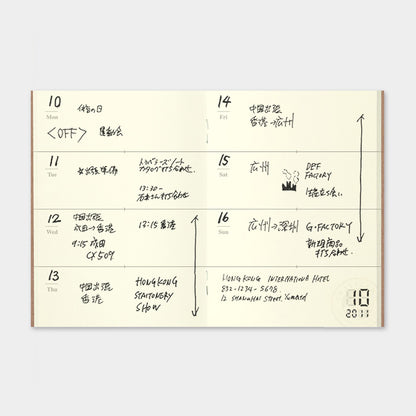 10
Mon
体育の日
<OFF> 運動会
11
Tue
出張準備
トラベラーズノート
カタログ打ち合わせ.
13:30-
12
Wed
中国出張
成田→香港
9:15 成田
CX509
13:15 香港
13
Thu
中国出張
香港
HONGKONG
STATIONERY
SHOW
14
Fri
中国出張
香港→広州
15
Sat
広州
DEF
FACTORY
16
Sun
広州→深圳
G.FACTORY
新規商品
打ち合わせ.
HONGKONG INTERNATIONAL HOTEL
852-1234-5678
12 SHANGHAI STREET, Yaumatei
10
2011